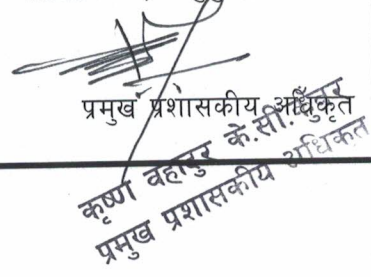 प्रमुख प्रशासकीय अधिकृत
कृष्ण बहादुर के.सी.
प्रमुख प्रशासकीय अधिकृत